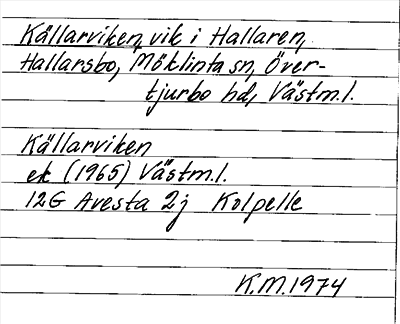 Källarviken, vik i Hallaren,
Hallarsbo, Möklinta sn, Över-
tjurbo hd, Västm.l.
Källarviken
ek (1965) Västm.l.
12G Avesta 2j Kolpelle
K.M.1974